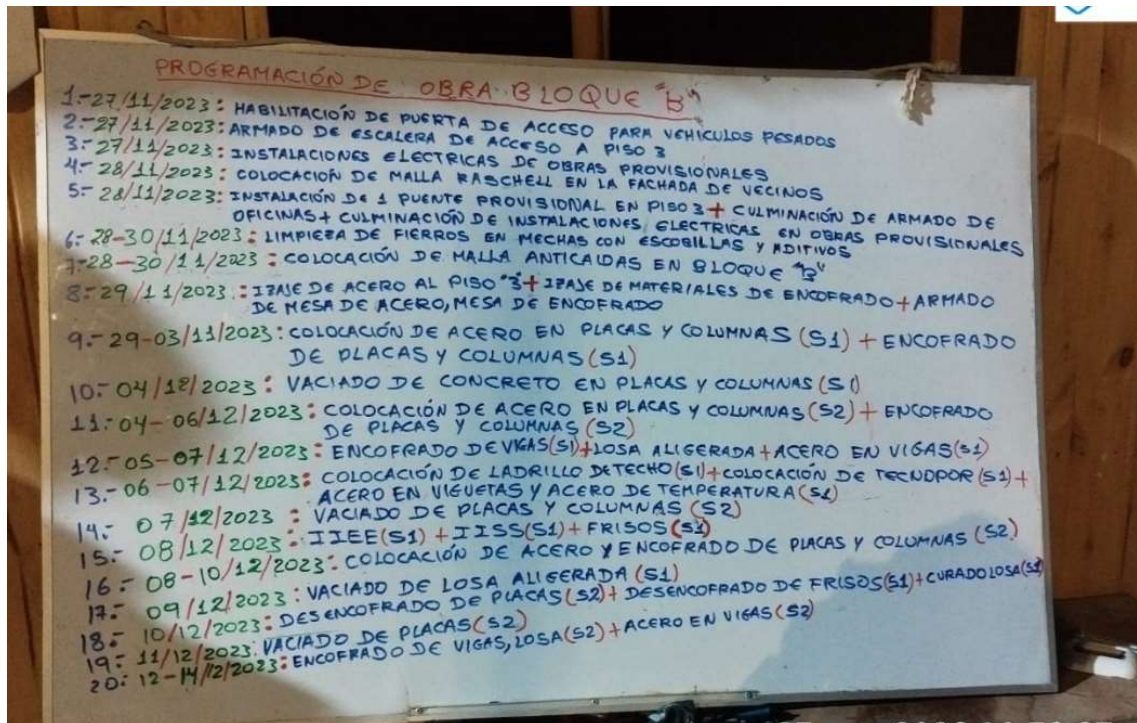 PROGRAMACIÓN DE OBRA BLOQUE "B"
1.-27/11/2023: HABILITACIÓN DE PUERTA DE ACCESO PARA VEHICULOS PESADOS
2.-27/11/2023: ARMADO DE ESCALERA DE ACCESO A PISO 3
3.-27/11/2023: INSTALACIONES ELECTRICAS DE OBRAS PROVISIONALES
4.- 28/11/2023: COLOCACIÓN DE MALLA RASCHELL EN LA FACHADA DE VECINOS
5.- 28/11/2023: INSTALACIÓN DE 1 PUENTE PROVISIONAL EN PISO 3 + CULMINACIÓN DE ARMADO DE
OFICINAS + CULMINACIÓN DE INSTALACIONES ELECTRICAS EN OBRAS PROVISIONALES
6.- 28-30/11/2023: LIMPIEZA DE FIERROS EN MECHAS CON ESCOBILLAS Y ADITIVOS
7.-28-30/11/2023: COLOCACIÓN DE MALLA ANTICAIDAS EN BLOQUE "B"
8.- 29/11/2023.: IZAJE DE ACERO AL PISO "3" + IZAJE DE MATERIALES DE ENCOFRADO + ARMADO
DE MESA DE ACERO, MESA DE ENCOFRADO
9.- 29-03/11/2023: COLOCACIÓN DE ACERO EN PLACAS Y COLUMNAS (S1) + ENCOFRADO
DE PLACAS Y COLUMNAS (S1)
10.- 04/12/2023: VACIADO DE CONCRETO EN PLACAS Y COLUMNAS (S1)
11.- 04-06/12/2023: COLOCACIÓN DE ACERO EN PLACAS Y COLUMNAS (S2) + ENCOFRADO
DE PLACAS Y COLUMNAS (S2)
12.- 05-07/12/2023: ENCOFRADO DE VIGAS(S1)+LOSA ALIGERADA+ACERO EN VIGAS(S1)
13.- 06-07/12/2023: COLOCACIÓN DE LADRILLO DE TECHO (S1)+COLOCACIÓN DE TECNOPOR (S1)+
ACERO EN VIGUETAS Y ACERO DE TEMPERATURA (S1)
14.- 07/12/2023: VACIADO DE PLACAS Y COLUMNAS (S2)
15.- 08/12/2023: IIEE(S1) + IISS(S1) + FRISOS (S1)
16.- 08-10/12/2023: COLOCACIÓN DE ACERO Y ENCOFRADO DE PLACAS Y COLUMNAS (S2)
17.- 09/12/2023: VACIADO DE LOSA ALIGERADA (S1)
18.- 10/12/2023: DESENCOFRADO DE PLACAS(S2)+ DESENCOFRADO DE FRISOS(S1)+CURADO LOSA(S1)
19.- 11/12/2023: VACIADO DE PLACAS(S2)
20.- 12-14/12/2023: ENCOFRADO DE VIGAS, LOSA(S2) + ACERO EN VIGAS(S2)